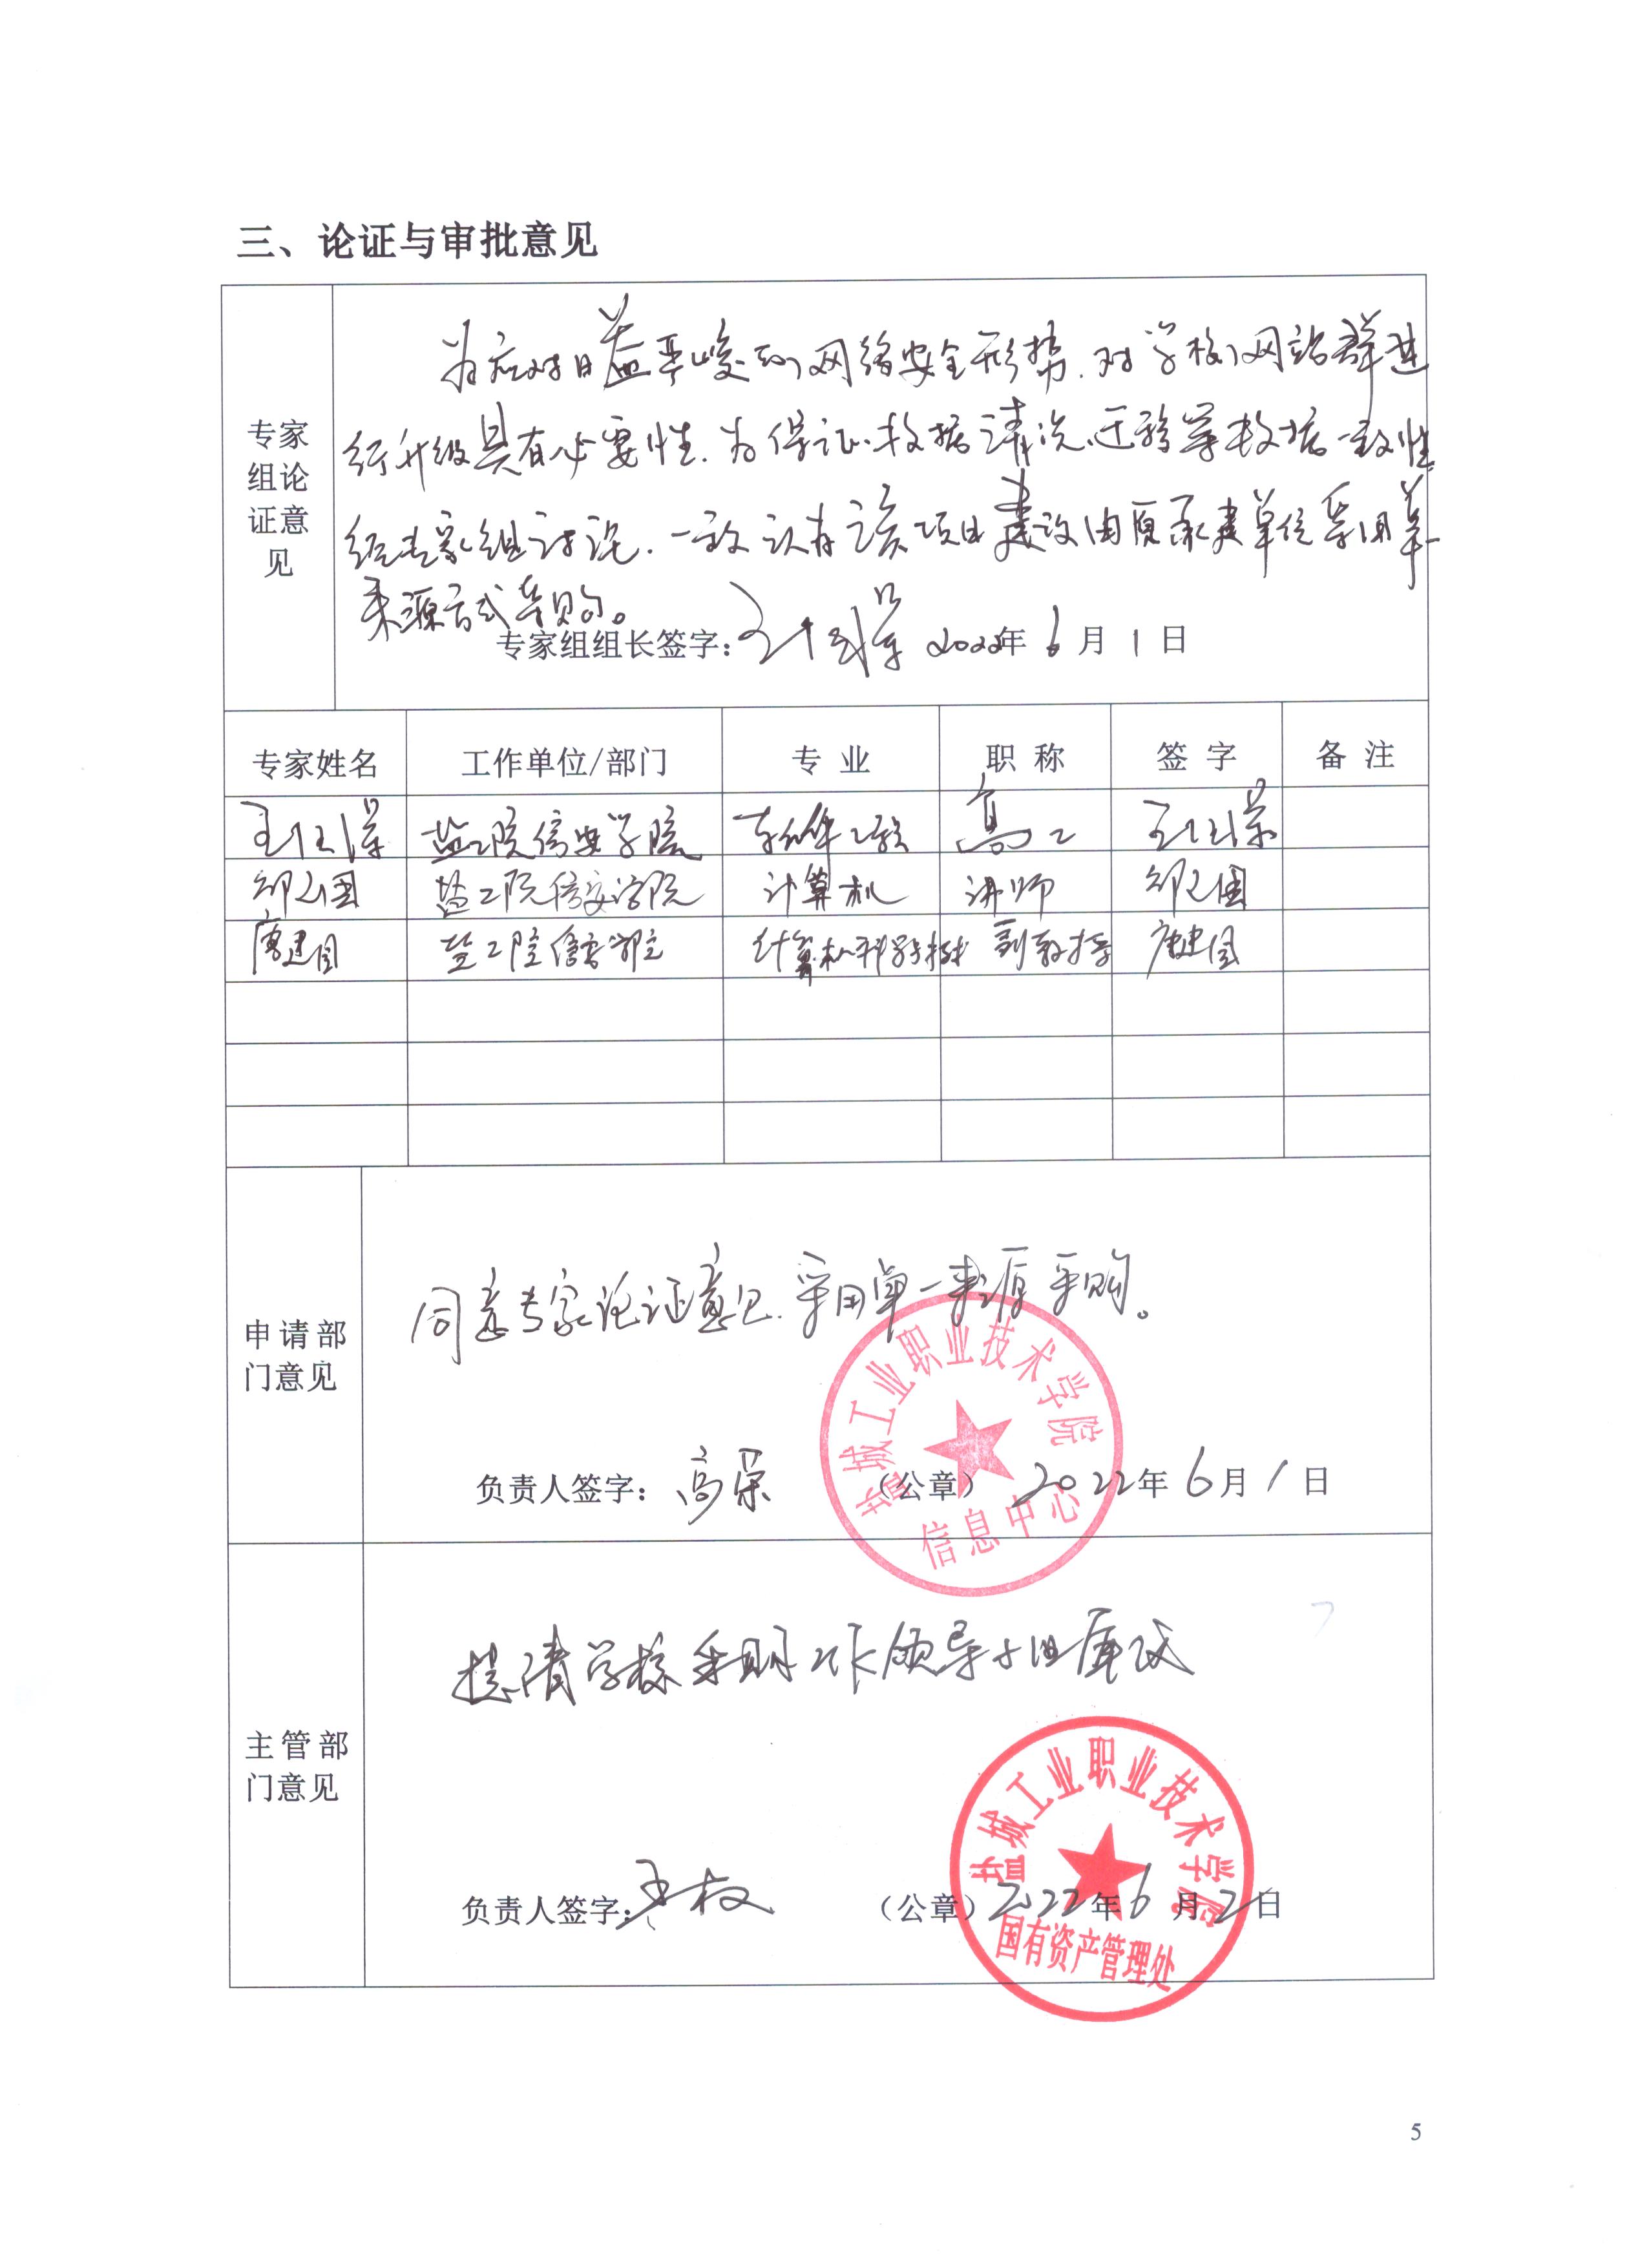 三、论证与审批意见
专家
组论
证意
见
为应对日益严峻的网络安全形势，对学校网站群进
行升级具有必要性。为保证数据清洗、迁移等数据一致性
经专家组讨论，一致认为该项目建设由原承建单位采用单一
来源方式采购。
专家组组长签字： 2022年6月1日
专家姓名 工作单位/部门 专 业 职 称 签 字 备 注
盐工院信安学院 软件工程 高工
盐工院信安学院 计算机 讲师
唐建国 盐工院信安学院 计算机科学与技术 副教授 唐建国
申请部
门意见
同意专家论证意见，采用单一来源采购。
负责人签字：高荣 （公章） 2022年6月1日
盐城工业职业技术学院
信息中心
主管部
门意见
提请学校采购工作领导小组审议
负责人签字： （公章）2022年6月2日
盐城工业职业技术学院
国有资产管理处
5